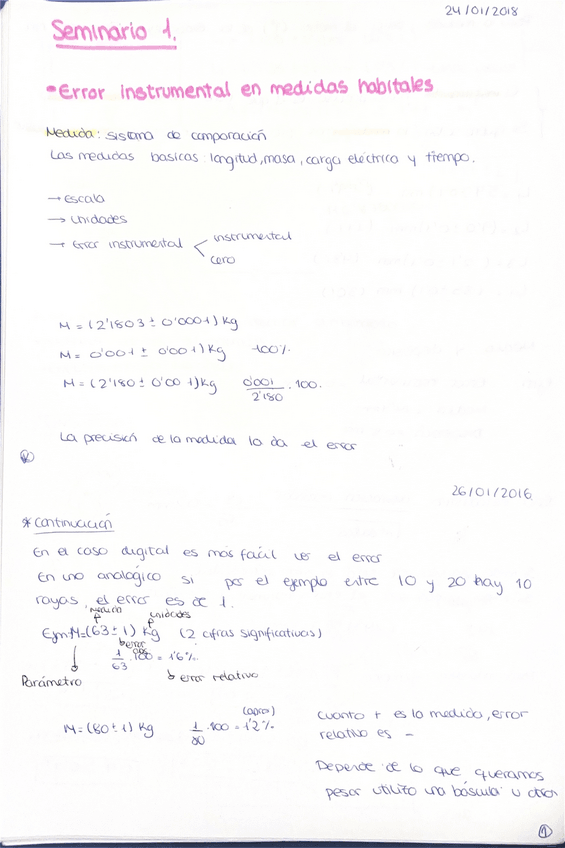 24/01/2018
Seminario 1.
• Error instrumental en medidas habitales
Medida: sistema de comparación
Las medidas basicas: longitud, masa, carga eléctrica y tiempo.
→ escala
→ unidades
→ Error instrumental < instrumental
cero
M = (2'1803 ± 0'0001) Kg
M = 0'001 ± 0'001) Kg 100%
M = (2'180 ± 0'001) Kg 0'001/2'180 · 100.
La precisión de la medida la da el error
26/01/2016.
* Continuación
En el caso digital es más fácil ver el error
En uno analógico si por el ejemplo entre 10 y 20 hay 10
rayas, el error es de 1.
medida unidades
Ejm: M=(63 ± 1) Kg (2 cifras significativas)
error
abs
1/63 · 100 = 1'6%.
Parámetro
error relativo
(aprox)
M = (80 ± 1) Kg 1/80 · 100 = 1'2%
cuanto + es la medida, error
relativo es -
Depende de lo que queramos
pesar utilizo una báscula u otra
1